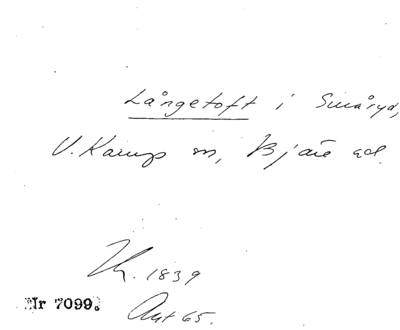 Långetoft i Småryd,
V. Karup sn, Bjäre hd.
Kr. 1839
Nr 7099.
Akt 65.